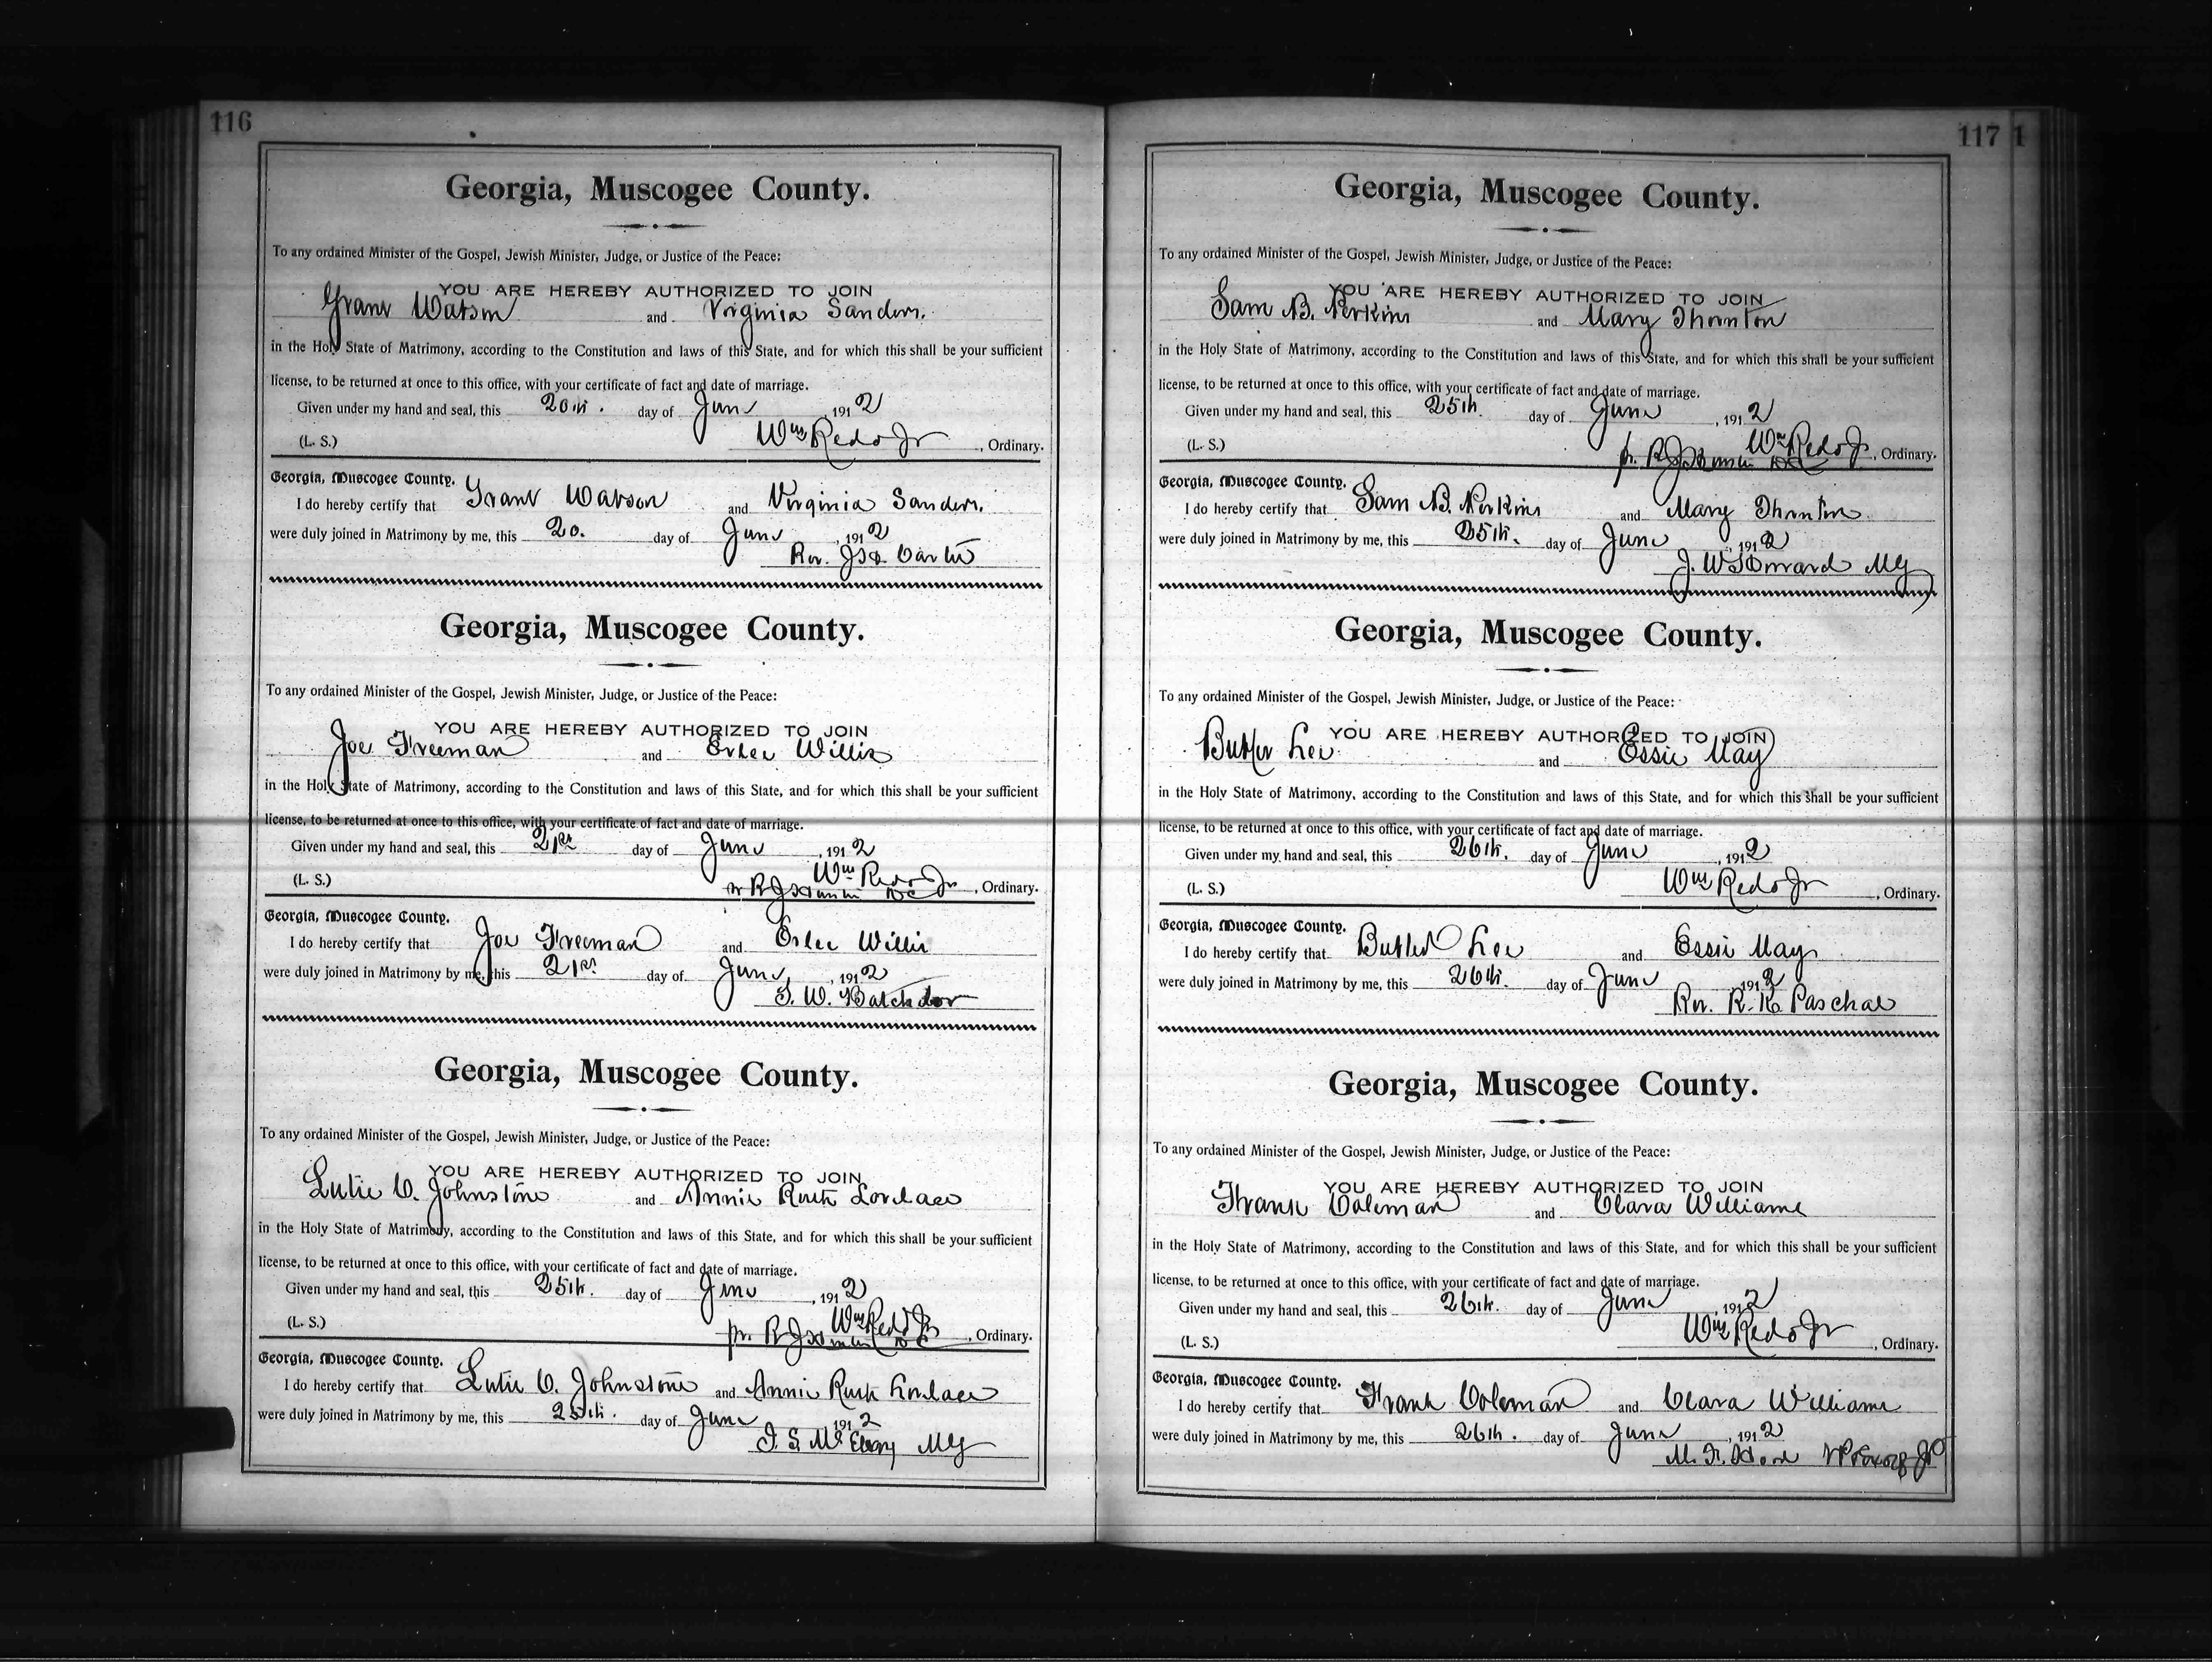 116
Georgia, Muscogee County.
To any ordained Minister of the Gospel, Jewish Minister, Judge, or Justice of the Peace:
YOU ARE HEREBY AUTHORIZED TO JOIN
Grant Watson and Virginia Sanders.
in the Holy State of Matrimony, according to the Constitution and laws of this State, and for which this shall be your sufficient
license, to be returned at once to this office, with your certificate of fact and date of marriage.
Given under my hand and seal, this 20th. day of June, 1912
(L. S.) Wm Redd Jr, Ordinary.
Georgia, Muscogee County.
I do hereby certify that Grant Watson and Virginia Sanders.
were duly joined in Matrimony by me, this 20. day of June, 1912
Rev. Carter
Georgia, Muscogee County.
To any ordained Minister of the Gospel, Jewish Minister, Judge, or Justice of the Peace:
YOU ARE HEREBY AUTHORIZED TO JOIN
Joe Freeman and Willis
in the Holy State of Matrimony, according to the Constitution and laws of this State, and for which this shall be your sufficient
license, to be returned at once to this office, with your certificate of fact and date of marriage.
Given under my hand and seal, this 21st day of June, 1912
Wm Redd Jr
(L. S.) , Ordinary.
Georgia, Muscogee County.
I do hereby certify that Joe Freeman and Willis
were duly joined in Matrimony by me, this 21st day of June, 1912
Batchelor
Georgia, Muscogee County.
To any ordained Minister of the Gospel, Jewish Minister, Judge, or Justice of the Peace:
YOU ARE HEREBY AUTHORIZED TO JOIN
Lutie C. Johnston and Annie Ruth Lovelace
in the Holy State of Matrimony, according to the Constitution and laws of this State, and for which this shall be your sufficient
license, to be returned at once to this office, with your certificate of fact and date of marriage.
Given under my hand and seal, this 25th. day of June, 1912
Wm Redd Jr
(L. S.) pr. , Ordinary.
Georgia, Muscogee County.
I do hereby certify that Lutie C. Johnston and Annie Ruth Lovelace
were duly joined in Matrimony by me, this 25th. day of June 1912
McElroy MG
117
Georgia, Muscogee County.
To any ordained Minister of the Gospel, Jewish Minister, Judge, or Justice of the Peace:
YOU ARE HEREBY AUTHORIZED TO JOIN
Sam B. Perkins and Mary Thornton
in the Holy State of Matrimony, according to the Constitution and laws of this State, and for which this shall be your sufficient
license, to be returned at once to this office, with your certificate of fact and date of marriage.
Given under my hand and seal, this 25th. day of June, 1912
Wm Redd Jr
(L. S.) pr. , Ordinary.
Georgia, Muscogee County.
I do hereby certify that Sam B. Perkins and Mary Thornton
were duly joined in Matrimony by me, this 25th. day of June, 1912
J. W. Howard MG
Georgia, Muscogee County.
To any ordained Minister of the Gospel, Jewish Minister, Judge, or Justice of the Peace:
YOU ARE HEREBY AUTHORIZED TO JOIN
Butler Lee and Essie May
in the Holy State of Matrimony, according to the Constitution and laws of this State, and for which this shall be your sufficient
license, to be returned at once to this office, with your certificate of fact and date of marriage.
Given under my hand and seal, this 26th. day of June, 1912
(L. S.) Wm Redd Jr, Ordinary.
Georgia, Muscogee County.
I do hereby certify that Butler Lee and Essie May
were duly joined in Matrimony by me, this 26th. day of June 1912
Rev. R. K. Paschal
Georgia, Muscogee County.
To any ordained Minister of the Gospel, Jewish Minister, Judge, or Justice of the Peace:
YOU ARE HEREBY AUTHORIZED TO JOIN
Frank Coleman and Clara Williams
in the Holy State of Matrimony, according to the Constitution and laws of this State, and for which this shall be your sufficient
license, to be returned at once to this office, with your certificate of fact and date of marriage.
Given under my hand and seal, this 26th. day of June, 1912
(L. S.) Wm Redd Jr, Ordinary.
Georgia, Muscogee County.
I do hereby certify that Frank Coleman and Clara Williams
were duly joined in Matrimony by me, this 26th. day of June, 1912